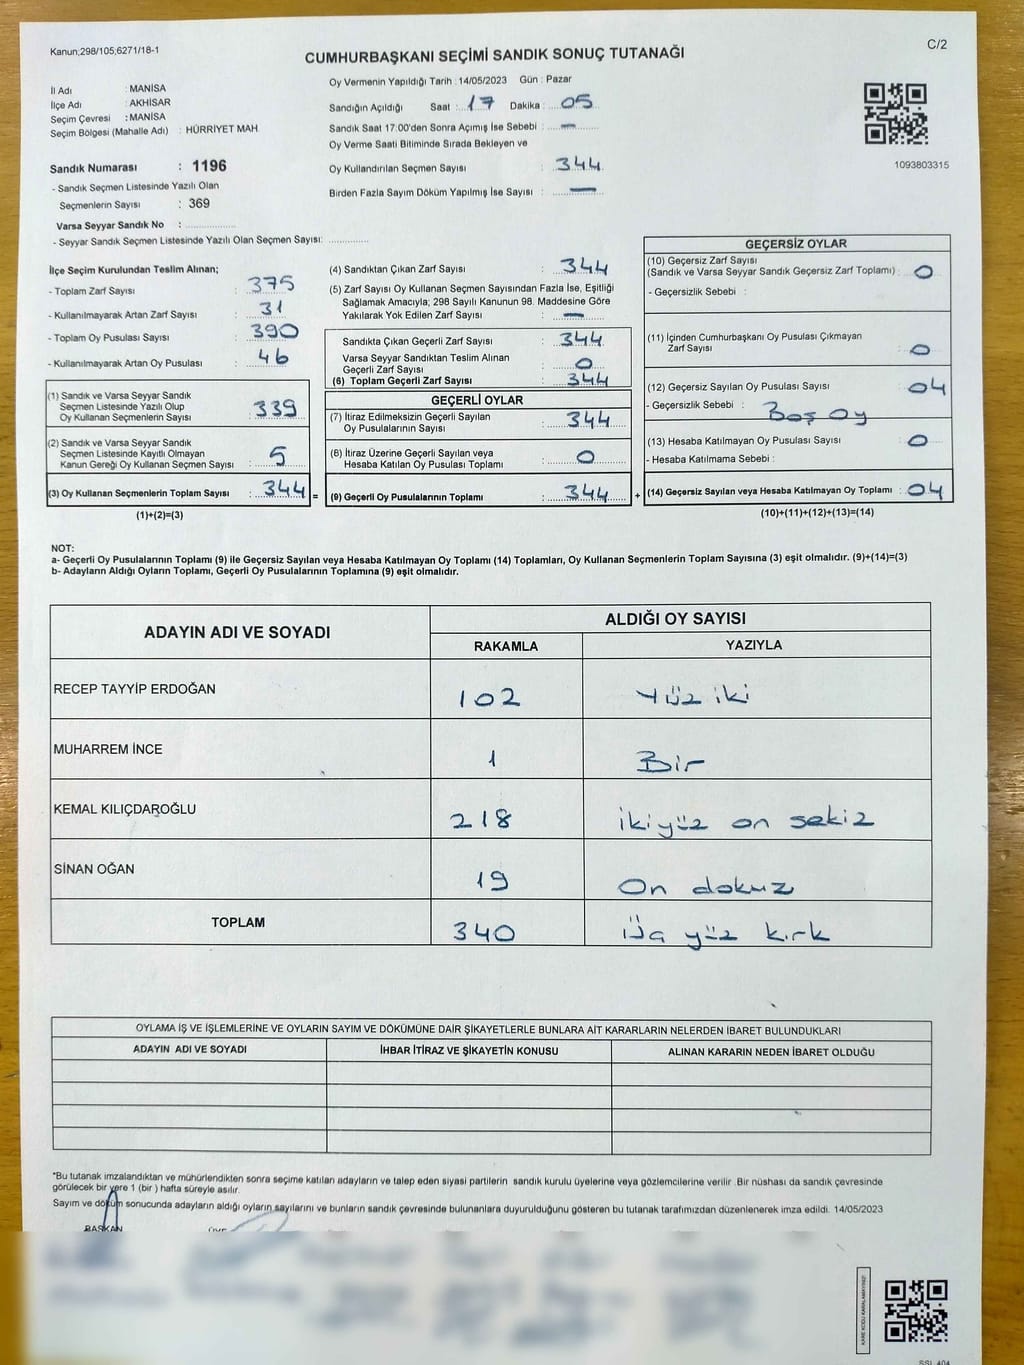 Kanun;298/105,6271/18-1
C/2
CUMHURBAŞKANI SEÇİMİ SANDIK SONUÇ TUTANAĞI
İl Adı : MANİSA
İlçe Adı : AKHİSAR
Seçim Çevresi : MANİSA
Seçim Bölgesi (Mahalle Adı) : HÜRRİYET MAH
Sandık Numarası : 1196
- Sandık Seçmen Listesinde Yazılı Olan
Seçmenlerin Sayısı : 369
Varsa Seyyar Sandık No :
- Seyyar Sandık Seçmen Listesinde Yazılı Olan Seçmen Sayısı:
Oy Vermenin Yapıldığı Tarih : 14/05/2023 Gün : Pazar
Sandığın Açıldığı Saat : 17 Dakika : 05
Sandık Saat 17:00'den Sonra Açımış İse Sebebi : —
Oy Verme Saati Bitiminde Sırada Bekleyen ve
Oy Kullandırılan Seçmen Sayısı : 344
Birden Fazla Sayım Döküm Yapılmış İse Sayısı : —
1093803315
İlçe Seçim Kurulundan Teslim Alınan;
- Toplam Zarf Sayısı : 375
- Kullanılmayarak Artan Zarf Sayısı : 31
- Toplam Oy Pusulası Sayısı : 390
- Kullanılmayarak Artan Oy Pusulası : 46
(1) Sandık ve Varsa Seyyar Sandık
Seçmen Listesinde Yazılı Olup
Oy Kullanan Seçmenlerin Sayısı : 339
(2) Sandık ve Varsa Seyyar Sandık
Seçmen Listesinde Kayıtlı Olmayan
Kanun Gereği Oy Kullanan Seçmen Sayısı : 5
(3) Oy Kullanan Seçmenlerin Toplam Sayısı : 344 =
(1)+(2)=(3)
(4) Sandıktan Çıkan Zarf Sayısı : 344
(5) Zarf Sayısı Oy Kullanan Seçmen Sayısından Fazla İse, Eşitliği
Sağlamak Amacıyla; 298 Sayılı Kanunun 98. Maddesine Göre
Yakılarak Yok Edilen Zarf Sayısı : —
Sandıkta Çıkan Geçerli Zarf Sayısı : 344
Varsa Seyyar Sandıktan Teslim Alınan
Geçerli Zarf Sayısı : 0
(6) Toplam Geçerli Zarf Sayısı : 344
GEÇERLİ OYLAR
(7) İtiraz Edilmeksizin Geçerli Sayılan
Oy Pusulalarının Sayısı : 344
(8) İtiraz Üzerine Geçerli Sayılan veya
Hesaba Katılan Oy Pusulası Toplamı : 0
(9) Geçerli Oy Pusulalarının Toplamı : 344 +
GEÇERSİZ OYLAR
(10) Geçersiz Zarf Sayısı
(Sandık ve Varsa Seyyar Sandık Geçersiz Zarf Toplamı) : 0
- Geçersizlik Sebebi :
(11) İçinden Cumhurbaşkanı Oy Pusulası Çıkmayan
Zarf Sayısı : 0
(12) Geçersiz Sayılan Oy Pusulası Sayısı : 04
- Geçersizlik Sebebi : Boş oy
(13) Hesaba Katılmayan Oy Pusulası Sayısı : 0
- Hesaba Katılmama Sebebi :
(14) Geçersiz Sayılan veya Hesaba Katılmayan Oy Toplamı : 04
(10)+(11)+(12)+(13)=(14)
NOT:
a- Geçerli Oy Pusulalarının Toplamı (9) ile Geçersiz Sayılan veya Hesaba Katılmayan Oy Toplamı (14) Toplamları, Oy Kullanan Seçmenlerin Toplam Sayısına (3) eşit olmalıdır. (9)+(14)=(3)
b- Adayların Aldığı Oyların Toplamı, Geçerli Oy Pusulalarının Toplamına (9) eşit olmalıdır.
ADAYIN ADI VE SOYADI ALDIĞI OY SAYISI
RAKAMLA YAZIYLA
RECEP TAYYİP ERDOĞAN 102 Yüz iki
MUHARREM İNCE 1 Bir
KEMAL KILIÇDAROĞLU 218 ikiyüz on sekiz
SİNAN OĞAN 19 On dokuz
TOPLAM 340 üç yüz kırk
OYLAMA İŞ VE İŞLEMLERİNE VE OYLARIN SAYIM VE DÖKÜMÜNE DAİR ŞİKAYETLERLE BUNLARA AİT KARARLARIN NELERDEN İBARET BULUNDUKLARI
ADAYIN ADI VE SOYADI İHBAR İTİRAZ VE ŞİKAYETİN KONUSU ALINAN KARARIN NEDEN İBARET OLDUĞU
*Bu tutanak imzalandıktan ve mühürlendikten sonra seçime katılan adayların ve talep eden siyasi partilerin sandık kurulu üyelerine veya gözlemcilerine verilir. Bir nüshası da sandık çevresinde
görülecek bir yere 1 (bir ) hafta süreyle asılır.
Sayım ve döküm sonucunda adayların aldığı oyların sayılarını ve bunların sandık çevresinde bulunanlara duyurulduğunu gösteren bu tutanak tarafımızdan düzenlenerek imza edildi. 14/05/2023
BAŞKAN